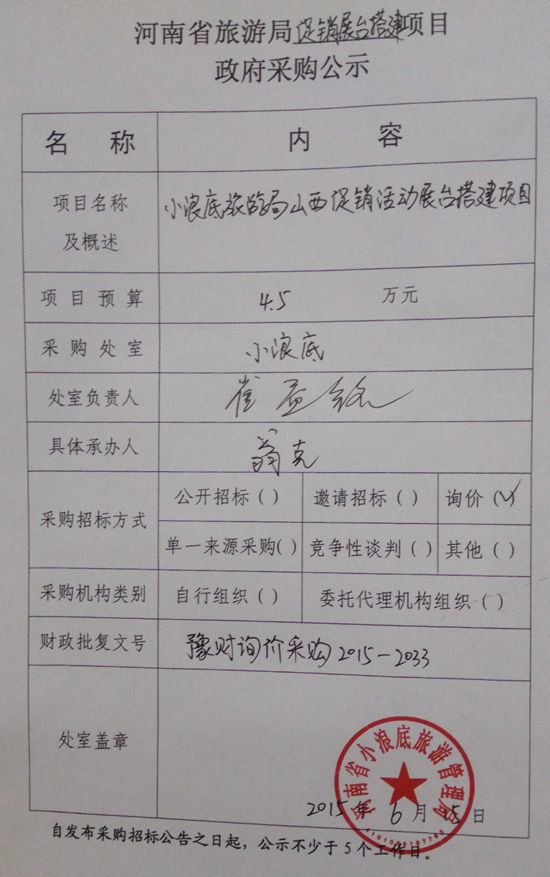 河南省旅游局促销展台搭建项目
政府采购公示
名 称
内 容
项目名称
及概述
小浪底旅游局山西促销活动展台搭建项目
项目预算
4.5 万元
采购处室
小浪底
处室负责人
崔
具体承办人
翁克
采购招标方式
公开招标( ) 邀请招标( ) 询价(√)
单一来源采购( ) 竞争性谈判( ) 其他( )
采购机构类别
自行组织( ) 委托代理机构组织( )
财政批复文号
豫财询价采购2015-2033
处室盖章
河南省小浪底旅游管理局
2015年 6月 15日
自发布采购招标公告之日起，公示不少于5个工作日。